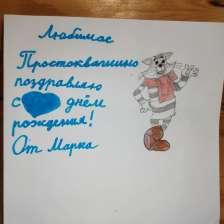 Любимое
Простоквашино
поздравляю
с днём
рождения!
От Марка